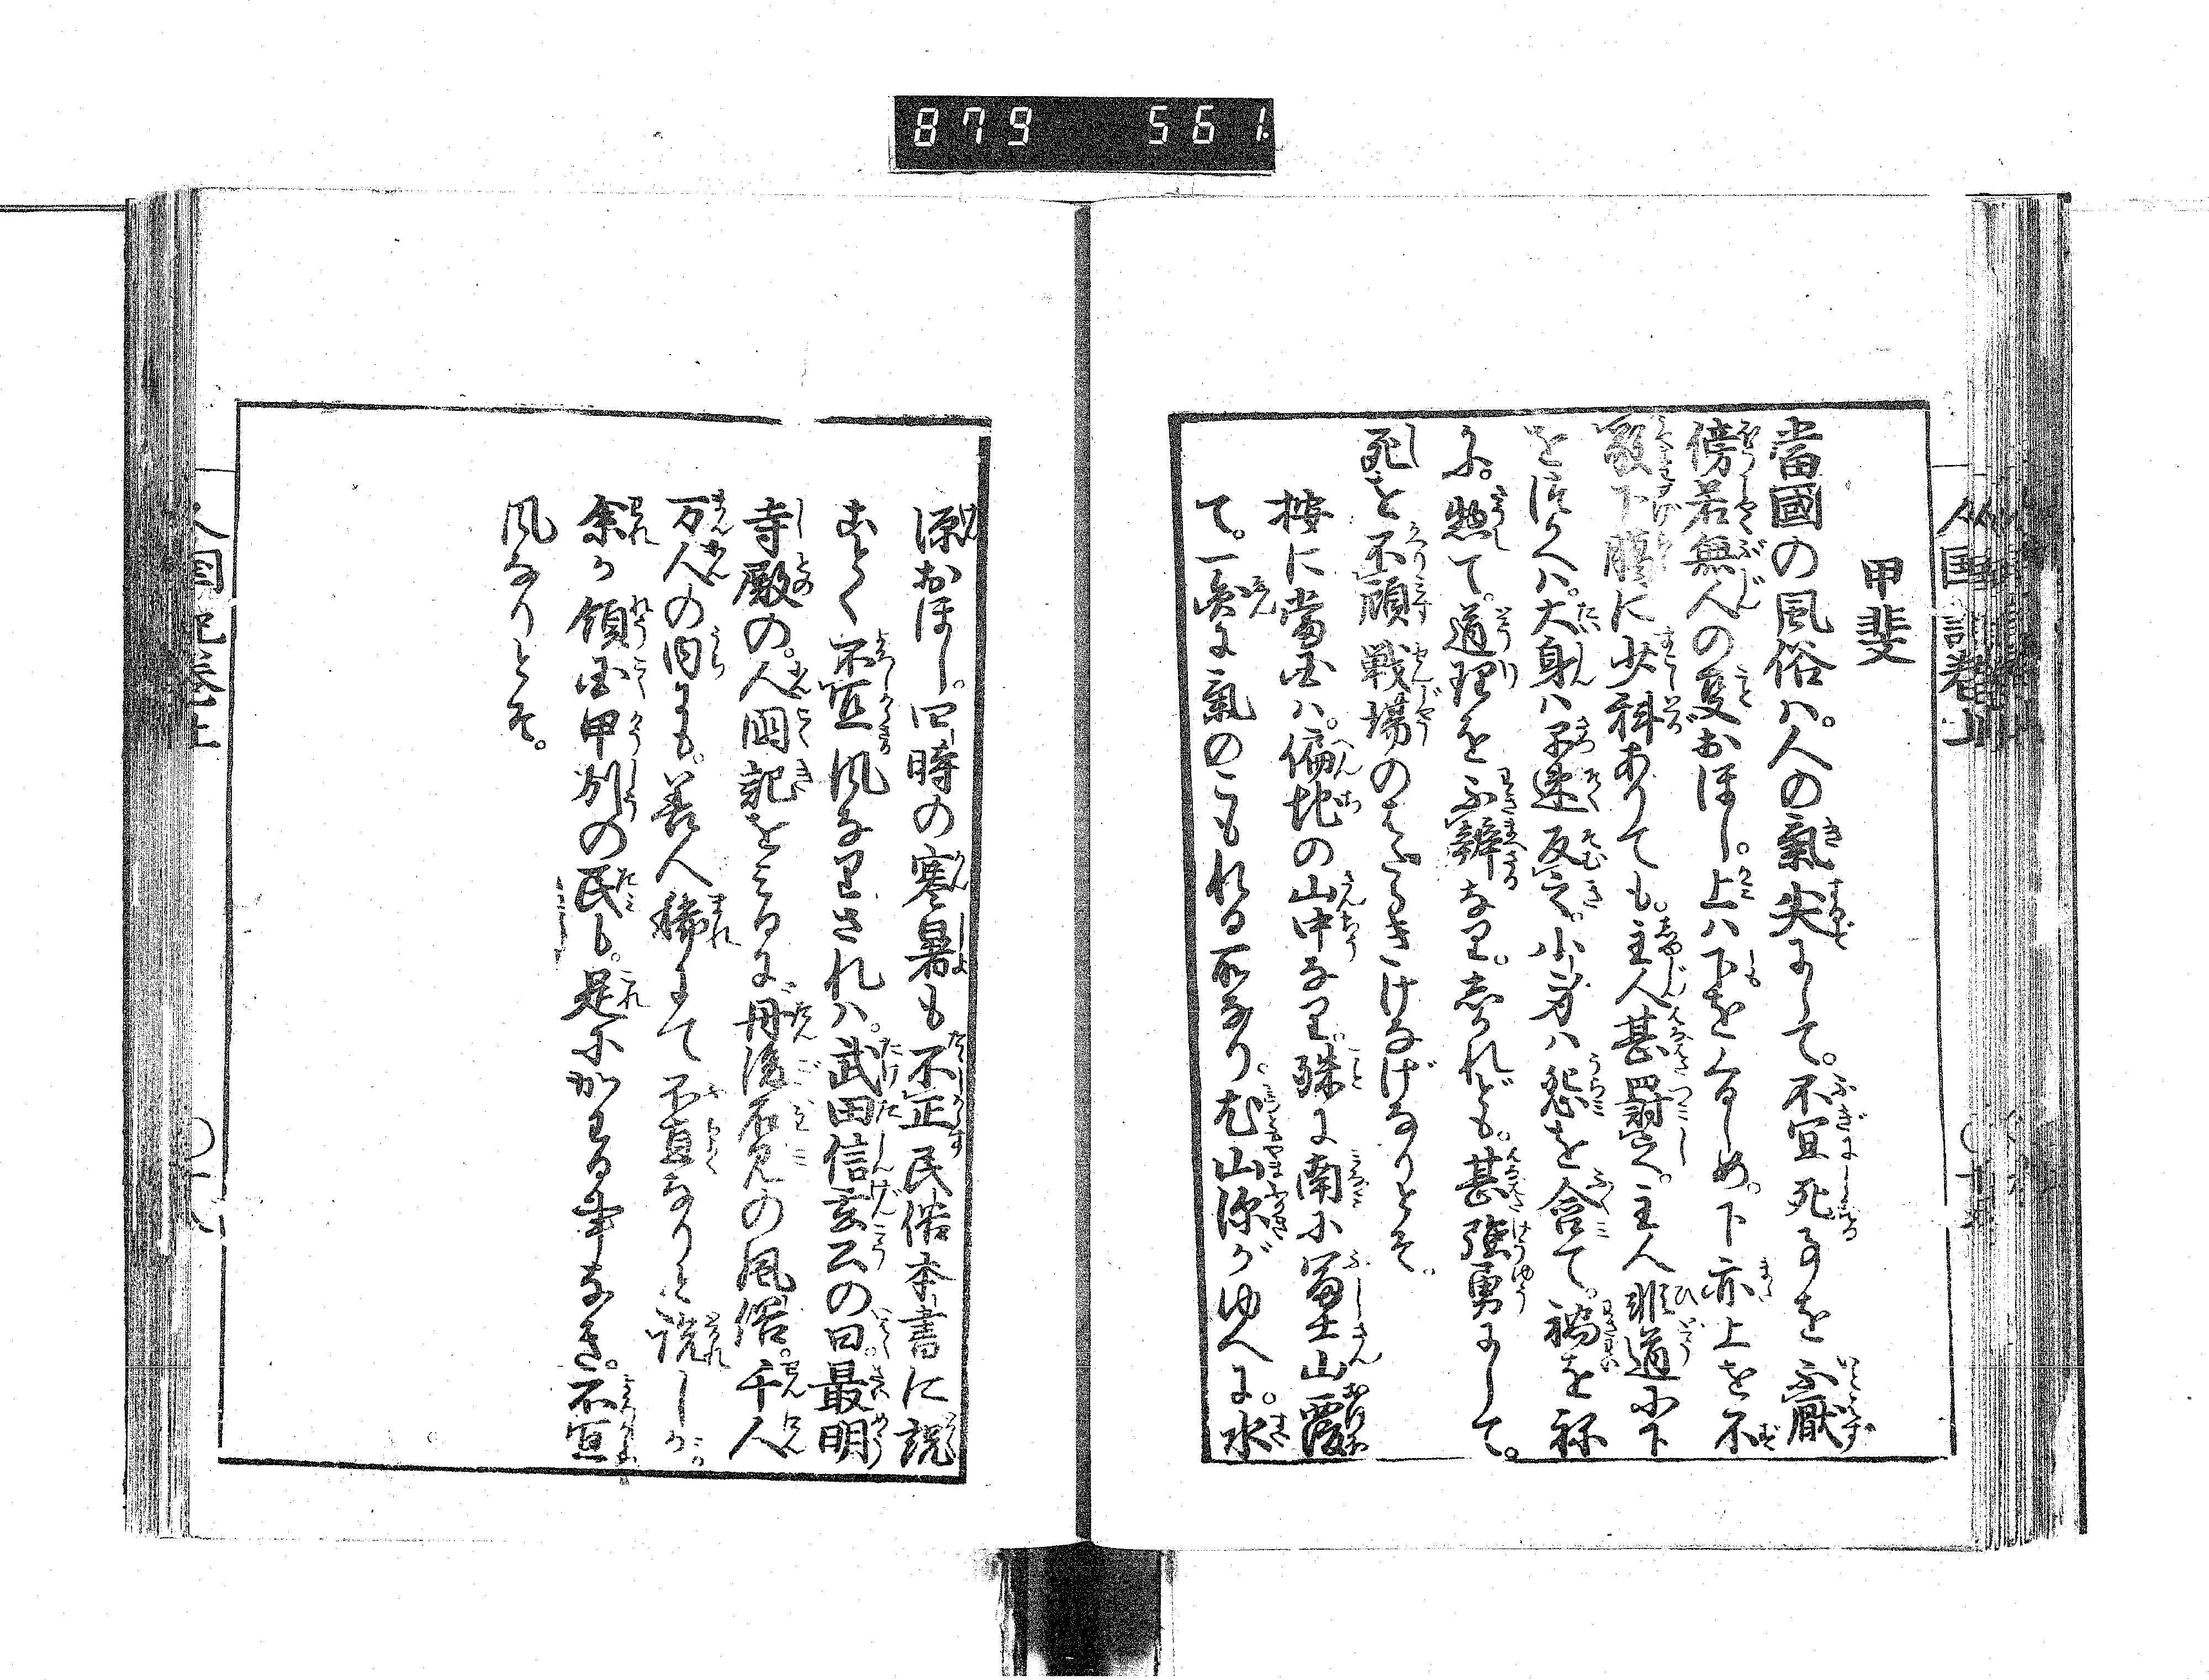 879 561
人国記巻上
甲斐
當國の風俗ハ。人の氣尖にして。不宜死るを不厭
傍若無人の事おほし。上ハ下をくるしめ。下亦上を不
敬下臈に少科ありても。主人甚罰之。主人非道に下
をつかへハ。大身ハ早速反之。小身ハ怨を含て。禍を祢
かふ。惣て。道理を不辨なり。しかれども。甚強勇にして。
死を不顧戦場のはたらきけなげなりとそ。
按に當国ハ。偏地の山中なり。殊に南に冨士山覆
て。一眞に氣のこもれる所なり。尤山深がゆへに。水
源おほし。四時の寒暑も不正民俗本書に説
ことく不宜風なりされハ。武田信玄公の曰。最明
寺殿の。人国記をみるに丹後石見の風俗。千人
万人の内にも。善人稀にて不直なりと説しか。
余か領国甲州の民も。是にかはる事なき。不宜
風なりとそ。
人国記巻上